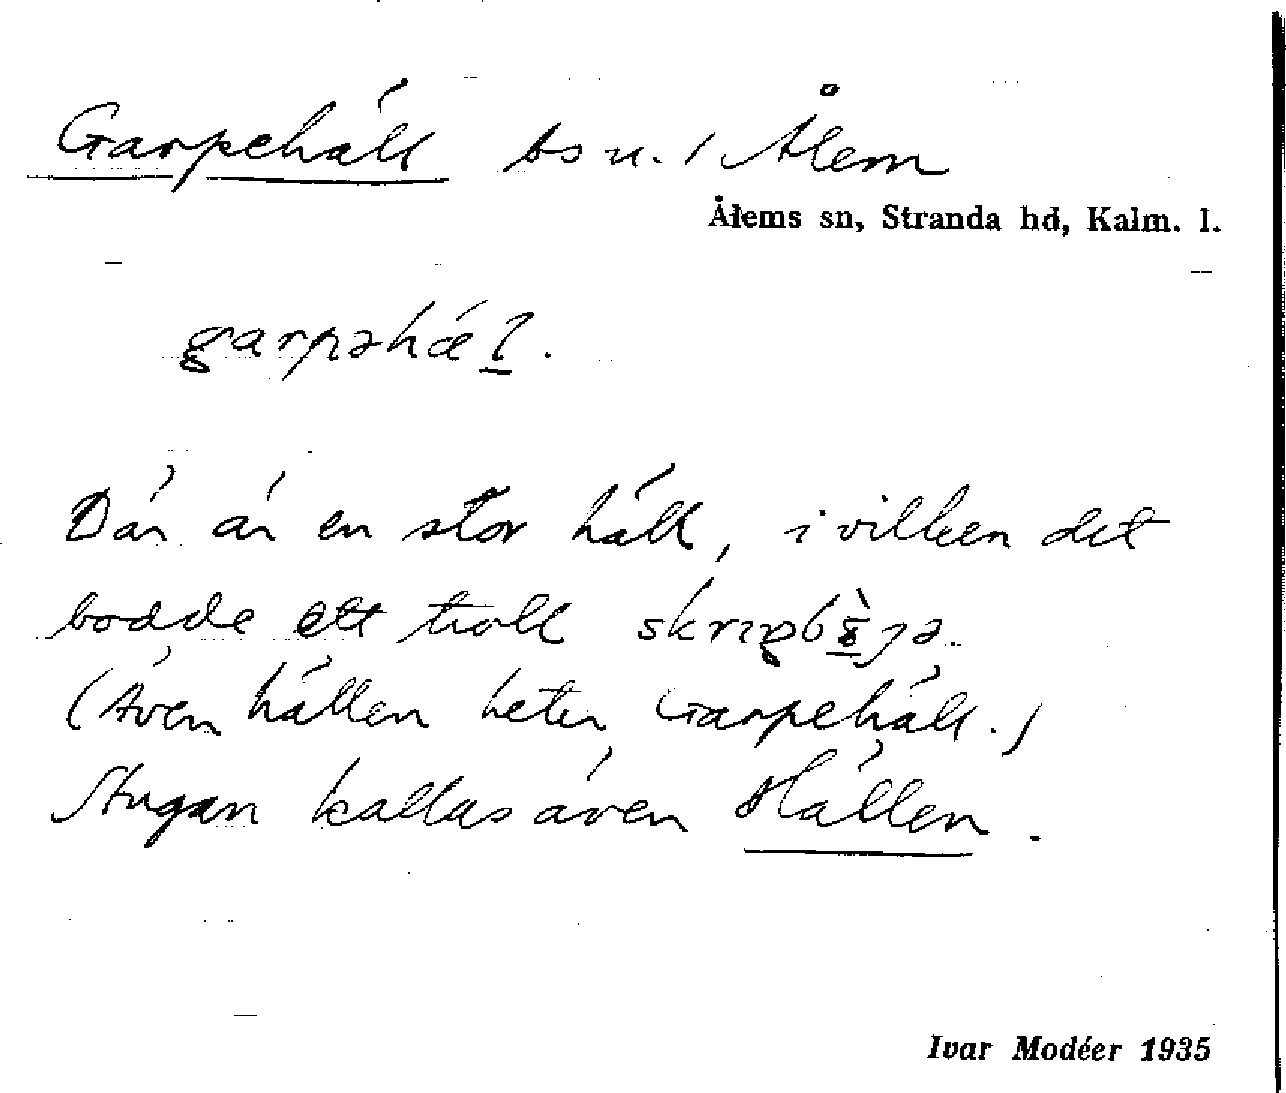 Garpehäll bs u. / Ålem
Ålems sn, Stranda hd, Kalm. l.
garpəhǽl.
Där är en stor häll, i vilken det
bodde ett troll
(Även hällen heter Garpehäll.)
Stugan kallas även Hällen.
Ivar Modéer 1935